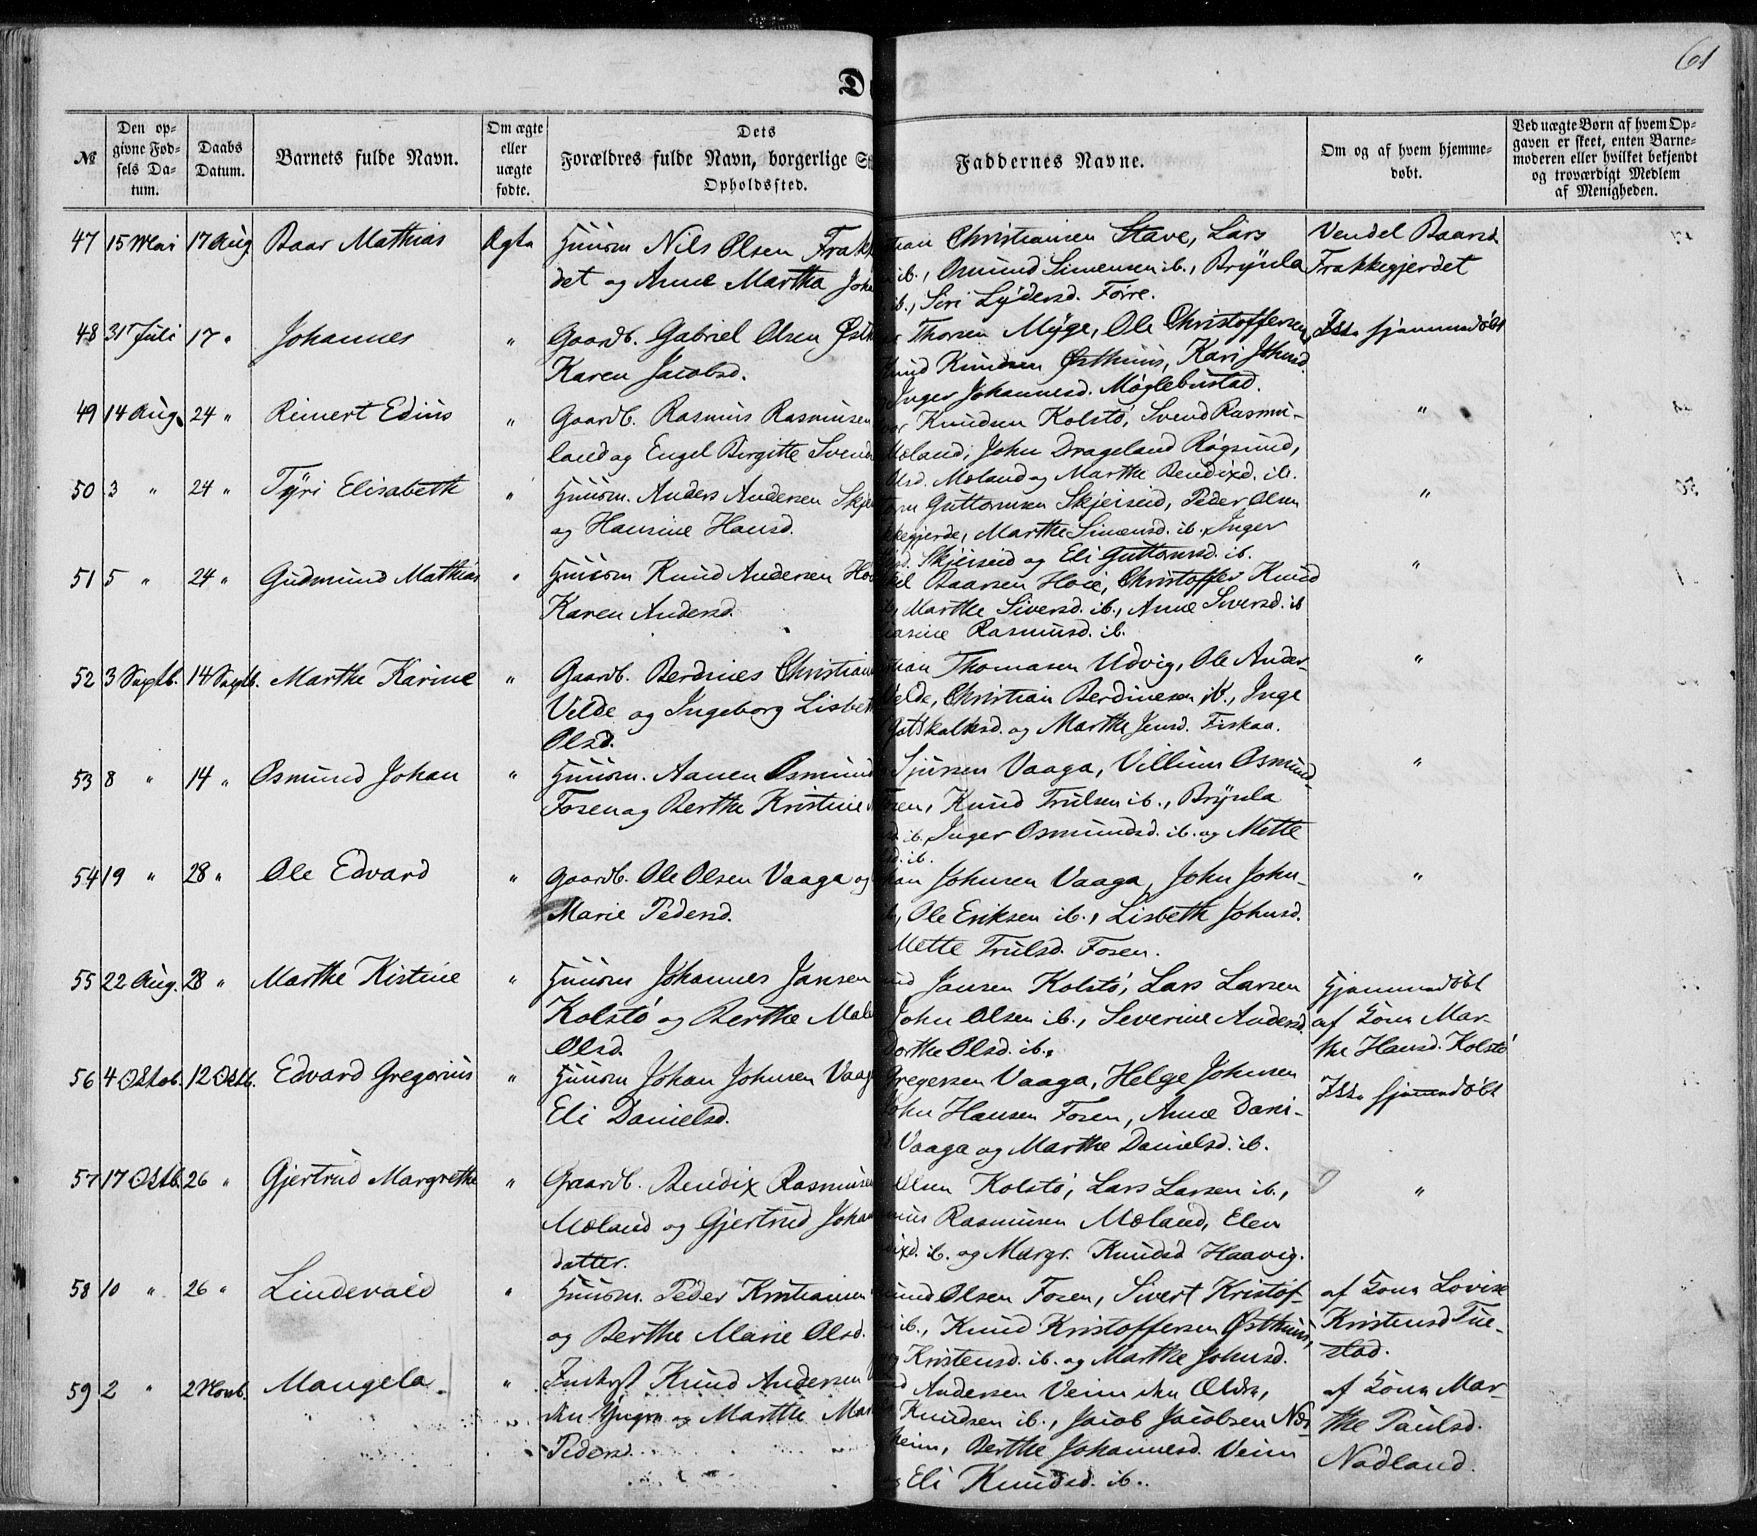 61
D
No
Den op-
givne Fød-
sels Da-
tum.
Daabs
Datum.
Barnets fulde Navn.
Om ægte
eller
uægte
fødte.
Dets
Forældres fulde Navn, borgerlige St
Opholdssted.
Faddernes Navne.
Om og af hvem hjemme-
døbt.
Ved uægte Børn af hvem Op-
gaven er skeet, enten Barne-
moderen eller hvilket bekjendt
og troværdigt Medlem
af Menigheden.
47 15 Mai 17 Aug. Baar Mathias Ægte Huusm Nils Olsen Frakk
det og Anne Martha Joh
tian Christiansen Stave, Lars
ib., Osmund Simensen ib., Brynla
ib., Siri Lydersd. Førre.
Vendel Baarsd.
Frakkegjerdet
48 31 Juli 17 " Johannes " Gaardb. Gabriel Olsen Østh
Karen Jacobsd.
Thorsen Myge, Ole Christoffersen
Knud Knudsen Østhuus, Kari Johnsd.
Inger Johannesd. Møglebustad.
Ikke hjemmedøbt
49 14 Aug. 24 " Reinert Edius " Gaardb. Rasmus Rasmusen
land og Engel Birgitte Svend
Knudsen Kolstø, Svend Rasmu-
Moland, John Drageland Røgsund,
Olsd. Moland og Marthe Bendixd. ib.
"
50 3 " 24 " Tyri Elisabeth " Huusm. Anders Andersen Skje
og Hansine Hansd.
Guttormsen Skjeiseid, Peder Olsen
kegjerde, Marthe Simensd. ib., Inger
Skjeiseid og Eli Guttormsd. ib.
"
51 5 " 24 " Gudmund Mathias " Huusm Knud Andersen Ho
Karen Andersd.
Baarsen Hoie, Christoffer Knud
Marthe Siversd. ib., Anne Siversd. ib
Rasmusd. ib.
"
52 3 Septb. 14 Septb. Marthe Karine " Gaardb. Berdines Christian
Velde og Ingeborg Lisbet
Olsd.
tian Thomasen Udvig, Ole Ander-
Velde, Christian Berdinesen ib., Inge
Gotskalksd. og Marthe Jensd. Fiskaa.
"
53 8 " 14 " Osmund Johan " Huusm. Aanen Osmund
Fosen og Berthe Kristine
Sjursen Vaaga, Villum Osmund-
Fosen, Knud Trulsen ib., Brynla
ib. Inger Osmundsd. ib. og Mette
ib.
"
54 19 " 28 " Ole Edvard " Gaardb. Ole Olsen Vaaga og
Marie Pedersd.
han Johnsen Vaaga, John John-
Ole Eriksen ib., Lisbeth Johnsd.
Mette Trulsd. Fosen.
"
55 22 Aug. 28 " Marthe Kistine " Huusm Johannes Jansen
Kolstø og Berthe Mal
Olsd.
Jansen Kolstø, Lars Larsen
John Olsen ib., Severine Andersd.
Dorthe Olsd. ib.
Hjemmedøbt
af Kona Mar-
the Hansd. Kolstø
56 4 Oktob. 12 Oktb. Edvard Gregorius " Huusm Johan Johnsen Vaag
Eli Danielsd.
Gregersen Vaaga, Helge Johnsen
John Hansen Fosen, Anne Dani-
Vaaga og Marthe Danielsd. ib.
Ikke hjemmedøbt
57 17 Oktb. 26 " Gjertrud Margrethe " Gaardb. Bendix Rasmusen
Moland og Gjertrud Johan
datter.
Olsen Kolstø, Lars Larsen ib.,
Rasmusen Moland, Elen
ib. og Margr. Knudsd Haavig.
"
58 10 " 26 " Lindevald " Huusm. Peder Kristiansen
og Berthe Marie Olsd.
Olsen Fosen, Sivert Kristof-
ib., Knud Kristoffersen Østhuus,
Kristensd. ib. og Marthe Johnsd.
af Kona Lovise
Kristensd Tue-
stad.
59 2 " 2 Novb. Mangela. " Inderst Knud Andersen
den Yngre og Marthe Mar
Pedersd.
Andersen Veim den Ældre,
Knudsen ib., Jacob Jacobsen Næs-
heim, Berthe Johannesd. Veim
og Eli Knudsd. ib.
af Kona Mar-
the Paulsd.
Nodland.